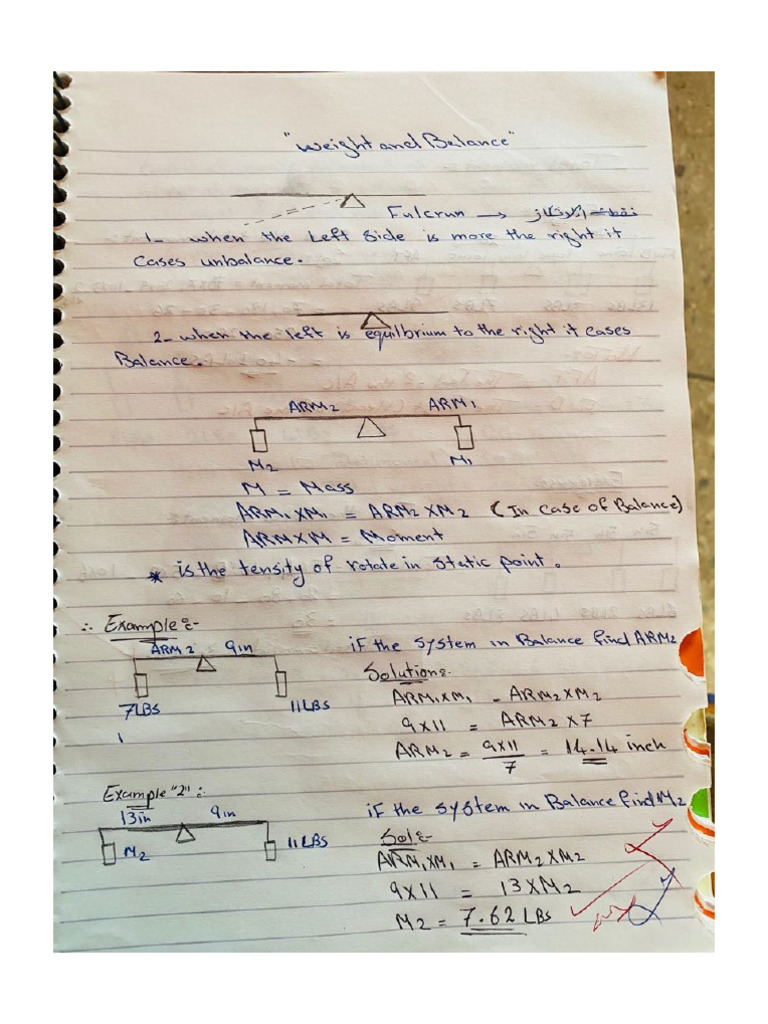 "Weight and Balance"
Fulcrun → نقطة الارتكاز
1- when the Left Side is more the right it
cases unbalance.
2- when the left is equilbrium to the right it cases
Balance.
ARM2 ARM1
M2 M1
M = Mass
ARM1 x M1 = ARM2 x M2 (In case of Balance)
ARM x M = Moment
* is the tensity of rotate in static point.
∴ Example:-
ARM 2 9in
7LBS 11LBS
if the system in Balance find ARM2
Solution:-
ARM1 x M1 = ARM2 x M2
9x11 = ARM2 x 7
ARM2 = 9x11/7 = 14.14 inch
Example "2":-
13in 9in
M2 11LBS
if the system in Balance find M2
Sol:-
ARM1 x M1 = ARM2 x M2
9x11 = 13 x M2
M2 = 7.62 LBS